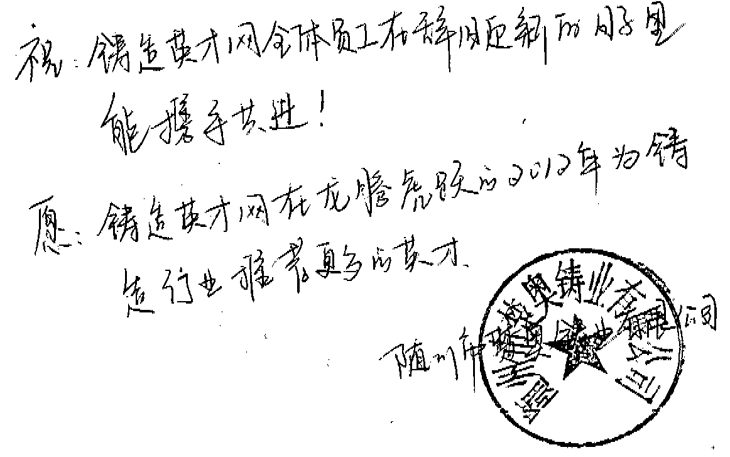 祝：铸造英才网全体员工在辞旧迎新的日子里
能携手共进！
愿：铸造英才网在龙腾虎跃的2012年为铸
造行业推荐更多的英才.
随州市 奥铸业有限公司
随州 奥铸业有限公司